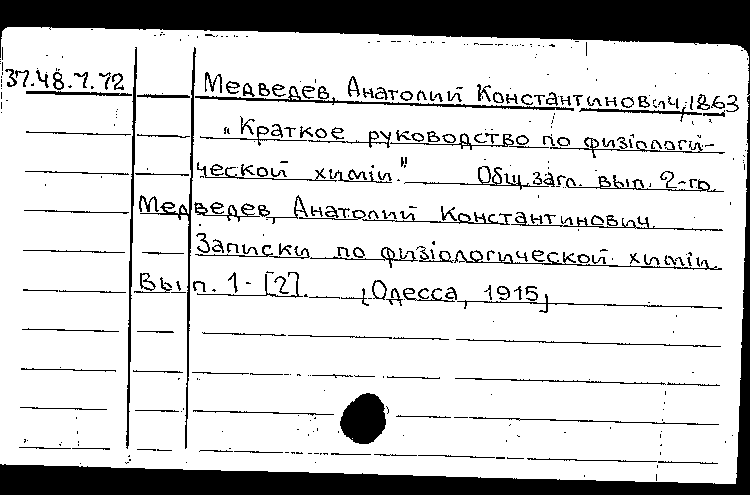 37.48.7.72 Медведев, Анатолий Константинович, 1863
„Краткое руководство по физіологи-
ческой химіи." Общ. загл. вып. 2-го.
Медведев, Анатолий Константинович.
Записки по физіологической химіи.
Вып. 1-[2]. [Одесса, 1915]